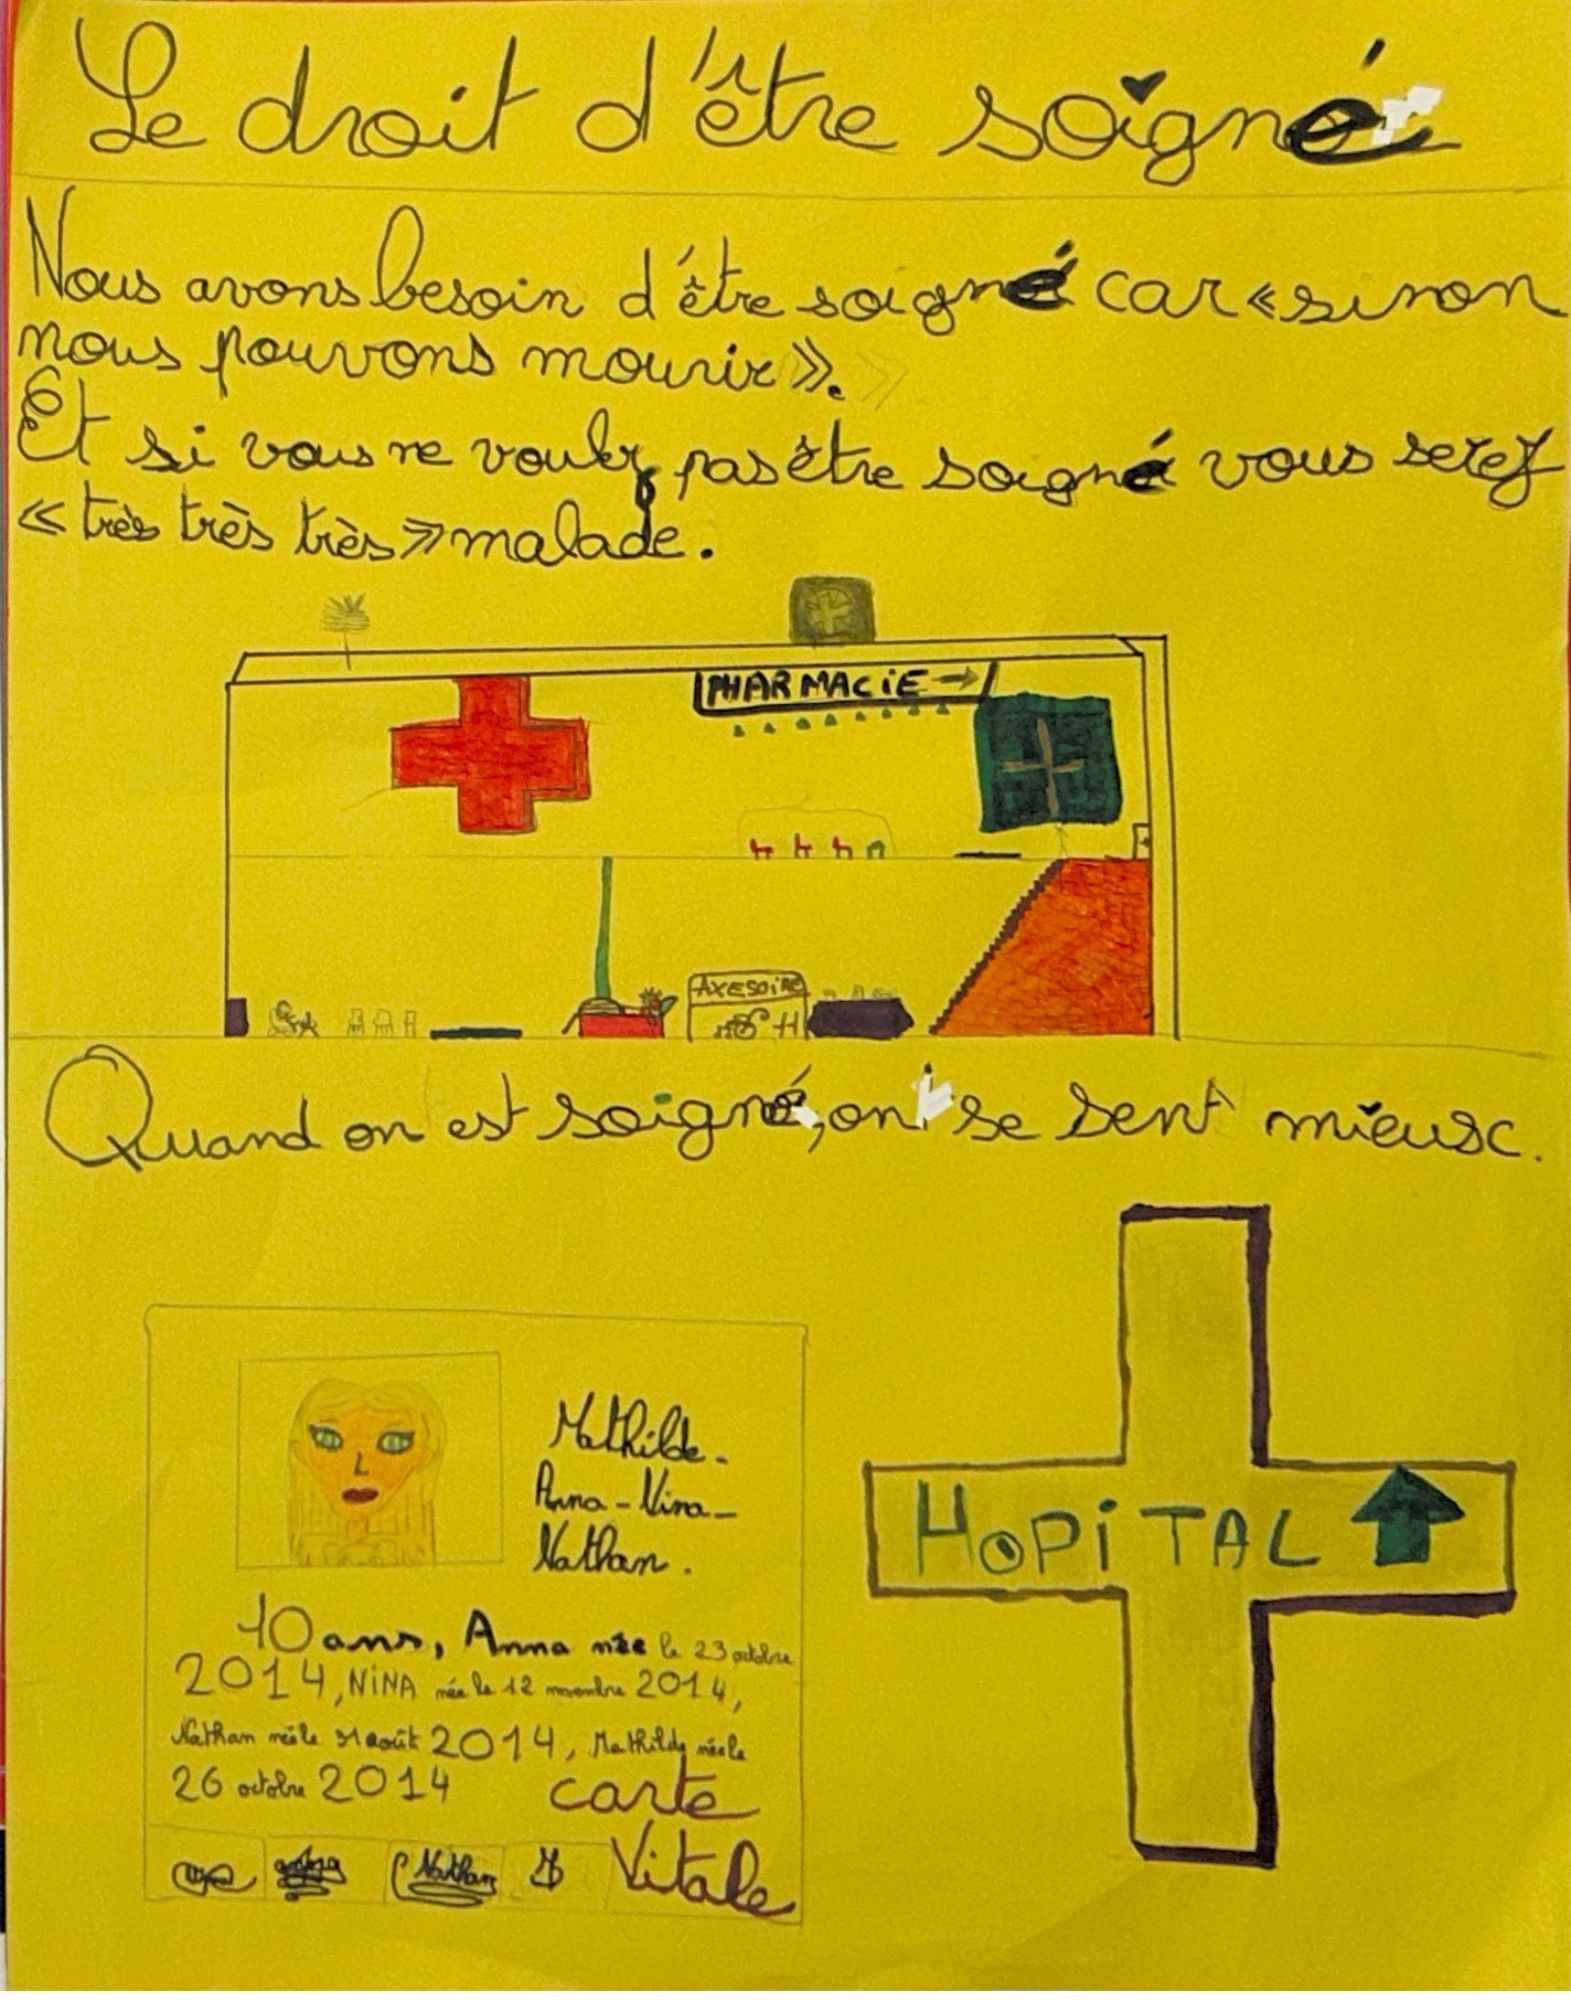 Le droit d'être soigné
Nous avons besoin d'être soigné car « sinon
nous pouvons mourir ».
Et si vous ne voulez pas être soigné vous serez
« très très très » malade.
PHARMACiE →
AXESOiRE
Quand on est soigné, on se sent mieux.
Mathilde.
Anna-Nina-
Nathan.
HOPiTAL
10 ans, Anna née le 23 octobre
2014, NiNA née le 12 novembre 2014,
Nathan né le 31 août 2014, Mathilde née le
26 octobre 2014 carte
Nathan Vitale